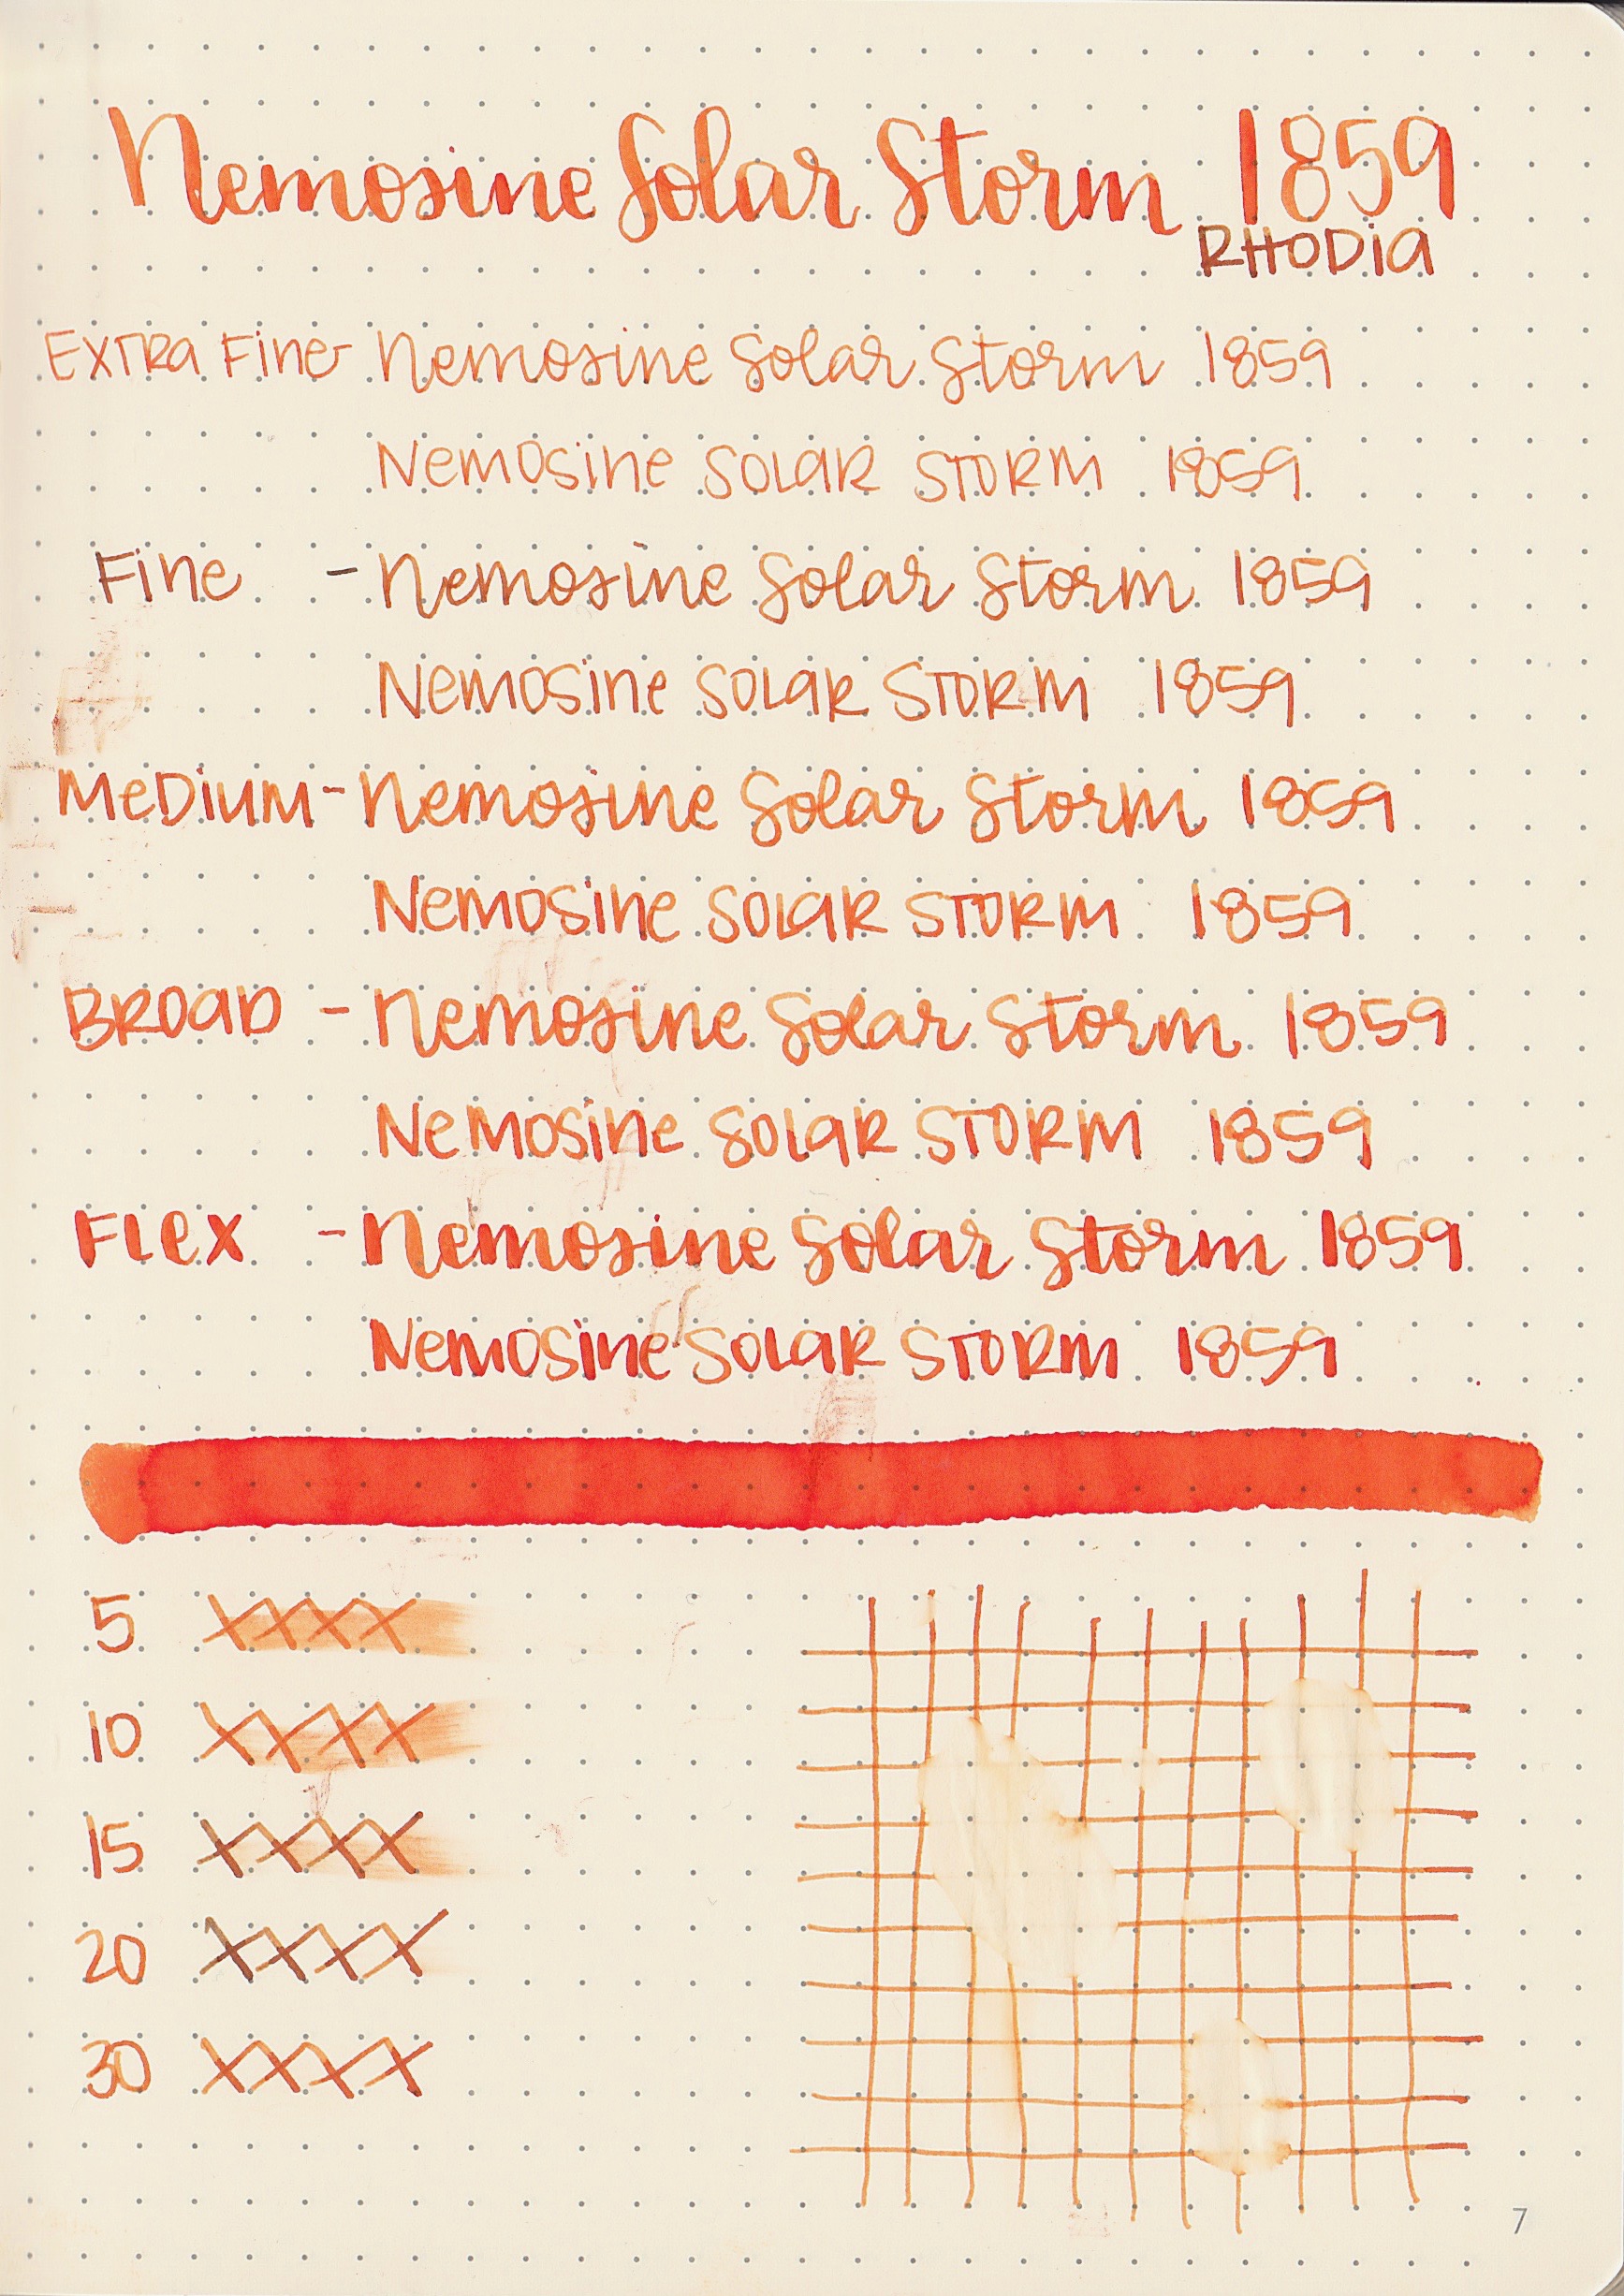 Nemosine Solar Storm 1859
RHODIA
Extra Fine - Nemosine Solar Storm 1859
Nemosine Solar Storm 1859
Fine - Nemosine Solar Storm 1859
Nemosine Solar Storm 1859
Medium - Nemosine Solar Storm 1859
Nemosine Solar Storm 1859
Broad - Nemosine Solar Storm 1859
Nemosine Solar Storm 1859
Flex - Nemosine Solar Storm 1859
Nemosine Solar Storm 1859
5 XXXX
10 XXXX
15 XXXX
20 XXXX
30 XXXX
7